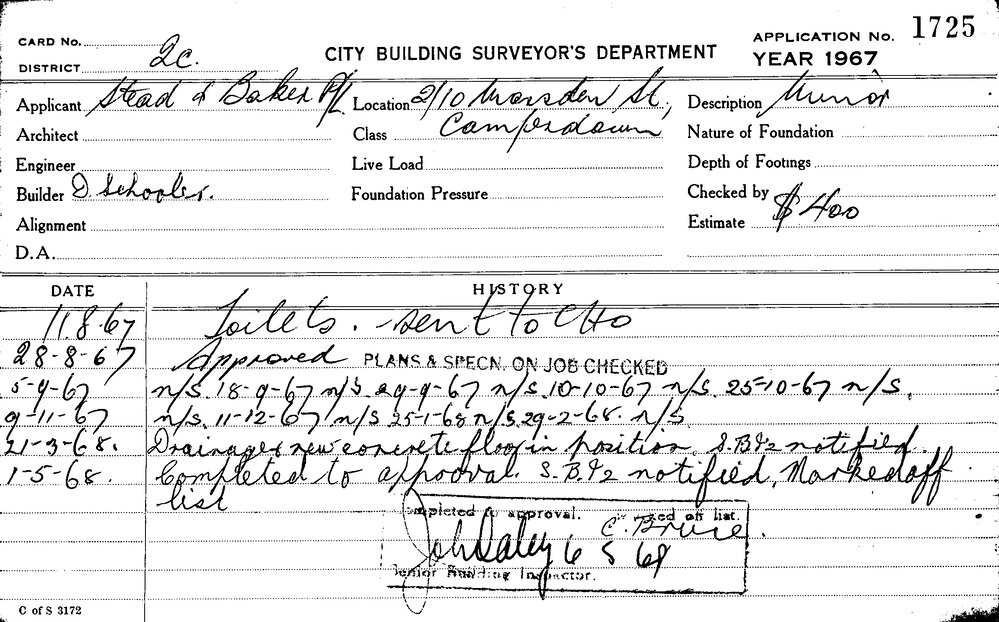 CARD No.
DISTRICT 2c.
CITY BUILDING SURVEYOR'S DEPARTMENT
APPLICATION No. 1725
YEAR 1967
Applicant Stead & Baker P/L Location 2/10 Marsden St, Description Minor
Architect Class Camperdown Nature of Foundation
Engineer Live Load Depth of Footings
Builder D. Schooler. Foundation Pressure Checked by
Alignment Estimate $400
D.A.
DATE HISTORY
11.8.67 Toilets. - sent to CHO
28-8-67 Approved PLANS & SPECN. ON JOB CHECKED
5-9-67 n/s. 18-9-67 n/s. 29-9-67 n/s. 10-10-67 n/s. 25-10-67 n/s.
9-11-67 n/s. 11-12-67 n/s 25-1-68 n/s. 29-2-68. n/s.
21-3-68. Drainage & new concrete floor in position. S.B.I's notified.
1-5-68. Completed to approval. S.B.I's notified, Marked off
list
Completed to approval. off list.
C. Bruce.
John Daley 6 5 68
Senior Building Inspector.
C of S 3172